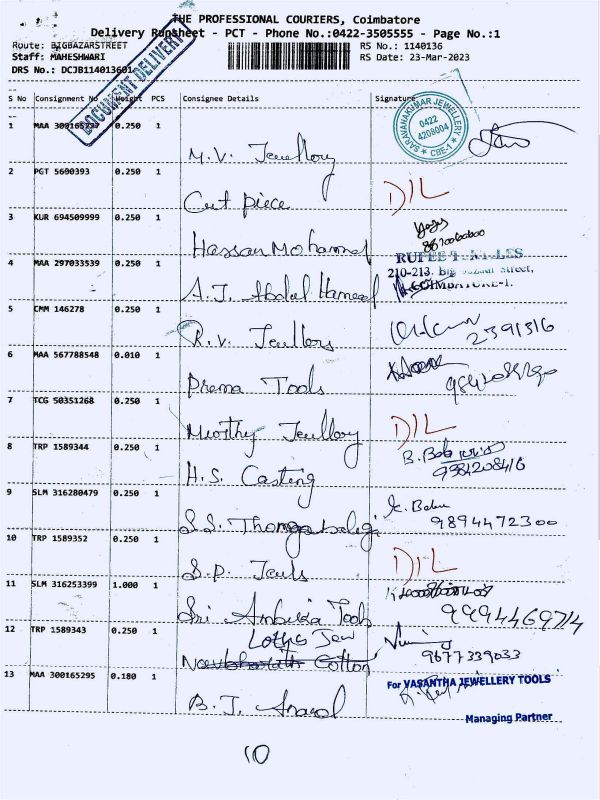 THE PROFESSIONAL COURIERS, Coimbatore
Delivery RunSheet - PCT - Phone No.:0422-3505555 - Page No.:1
Route: BIGBAZARSTREET
RS No.: 1140136
Staff: MAHESHWARI
RS Date: 23-Mar-2023
DRS No.: DCJB1140136
DOCUMENT DELIVERY
S No Consignment No Weight PCS Consignee Details Signature
SARAVANAKUMAR JEWELLERY
0422
4208004
CBE-1
1 MAA 0.250 1
M.V. Jewellory
2 PGT 5600393 0.250 1
Cut piece
D/L
3 KUR 694509999 0.250 1
Hassan Mohammed
4 MAA 297033539 0.250 1
210-213, Big Bazaar Street,
COIMBATORE-1.
A.J. Abdul Hameed
5 CMM 146278 0.250 1
R.V. Jewllers
2391316
6 MAA 567788548 0.010 1
Prema Tools
7 TCG 50351268 0.250 1
Murthy Jewllory
D/L
8 TRP 1589344 0.250 1
H.S. Casting
9 SLM 316280479 0.250 1
K. Babu
9894472300
S.S.
10 TRP 1589352 0.250 1
S.P. Jewls
D/L
11 SLM 316253399 1.000 1
Sri Ambika Tools
9994469714
12 TRP 1589343 0.250 1
Lotus Jew
Cotton
9677339033
13 MAA 300165295 0.180 1
For VASANTHA JEWELLERY TOOLS
B.J. Anand
Managing Partner
10